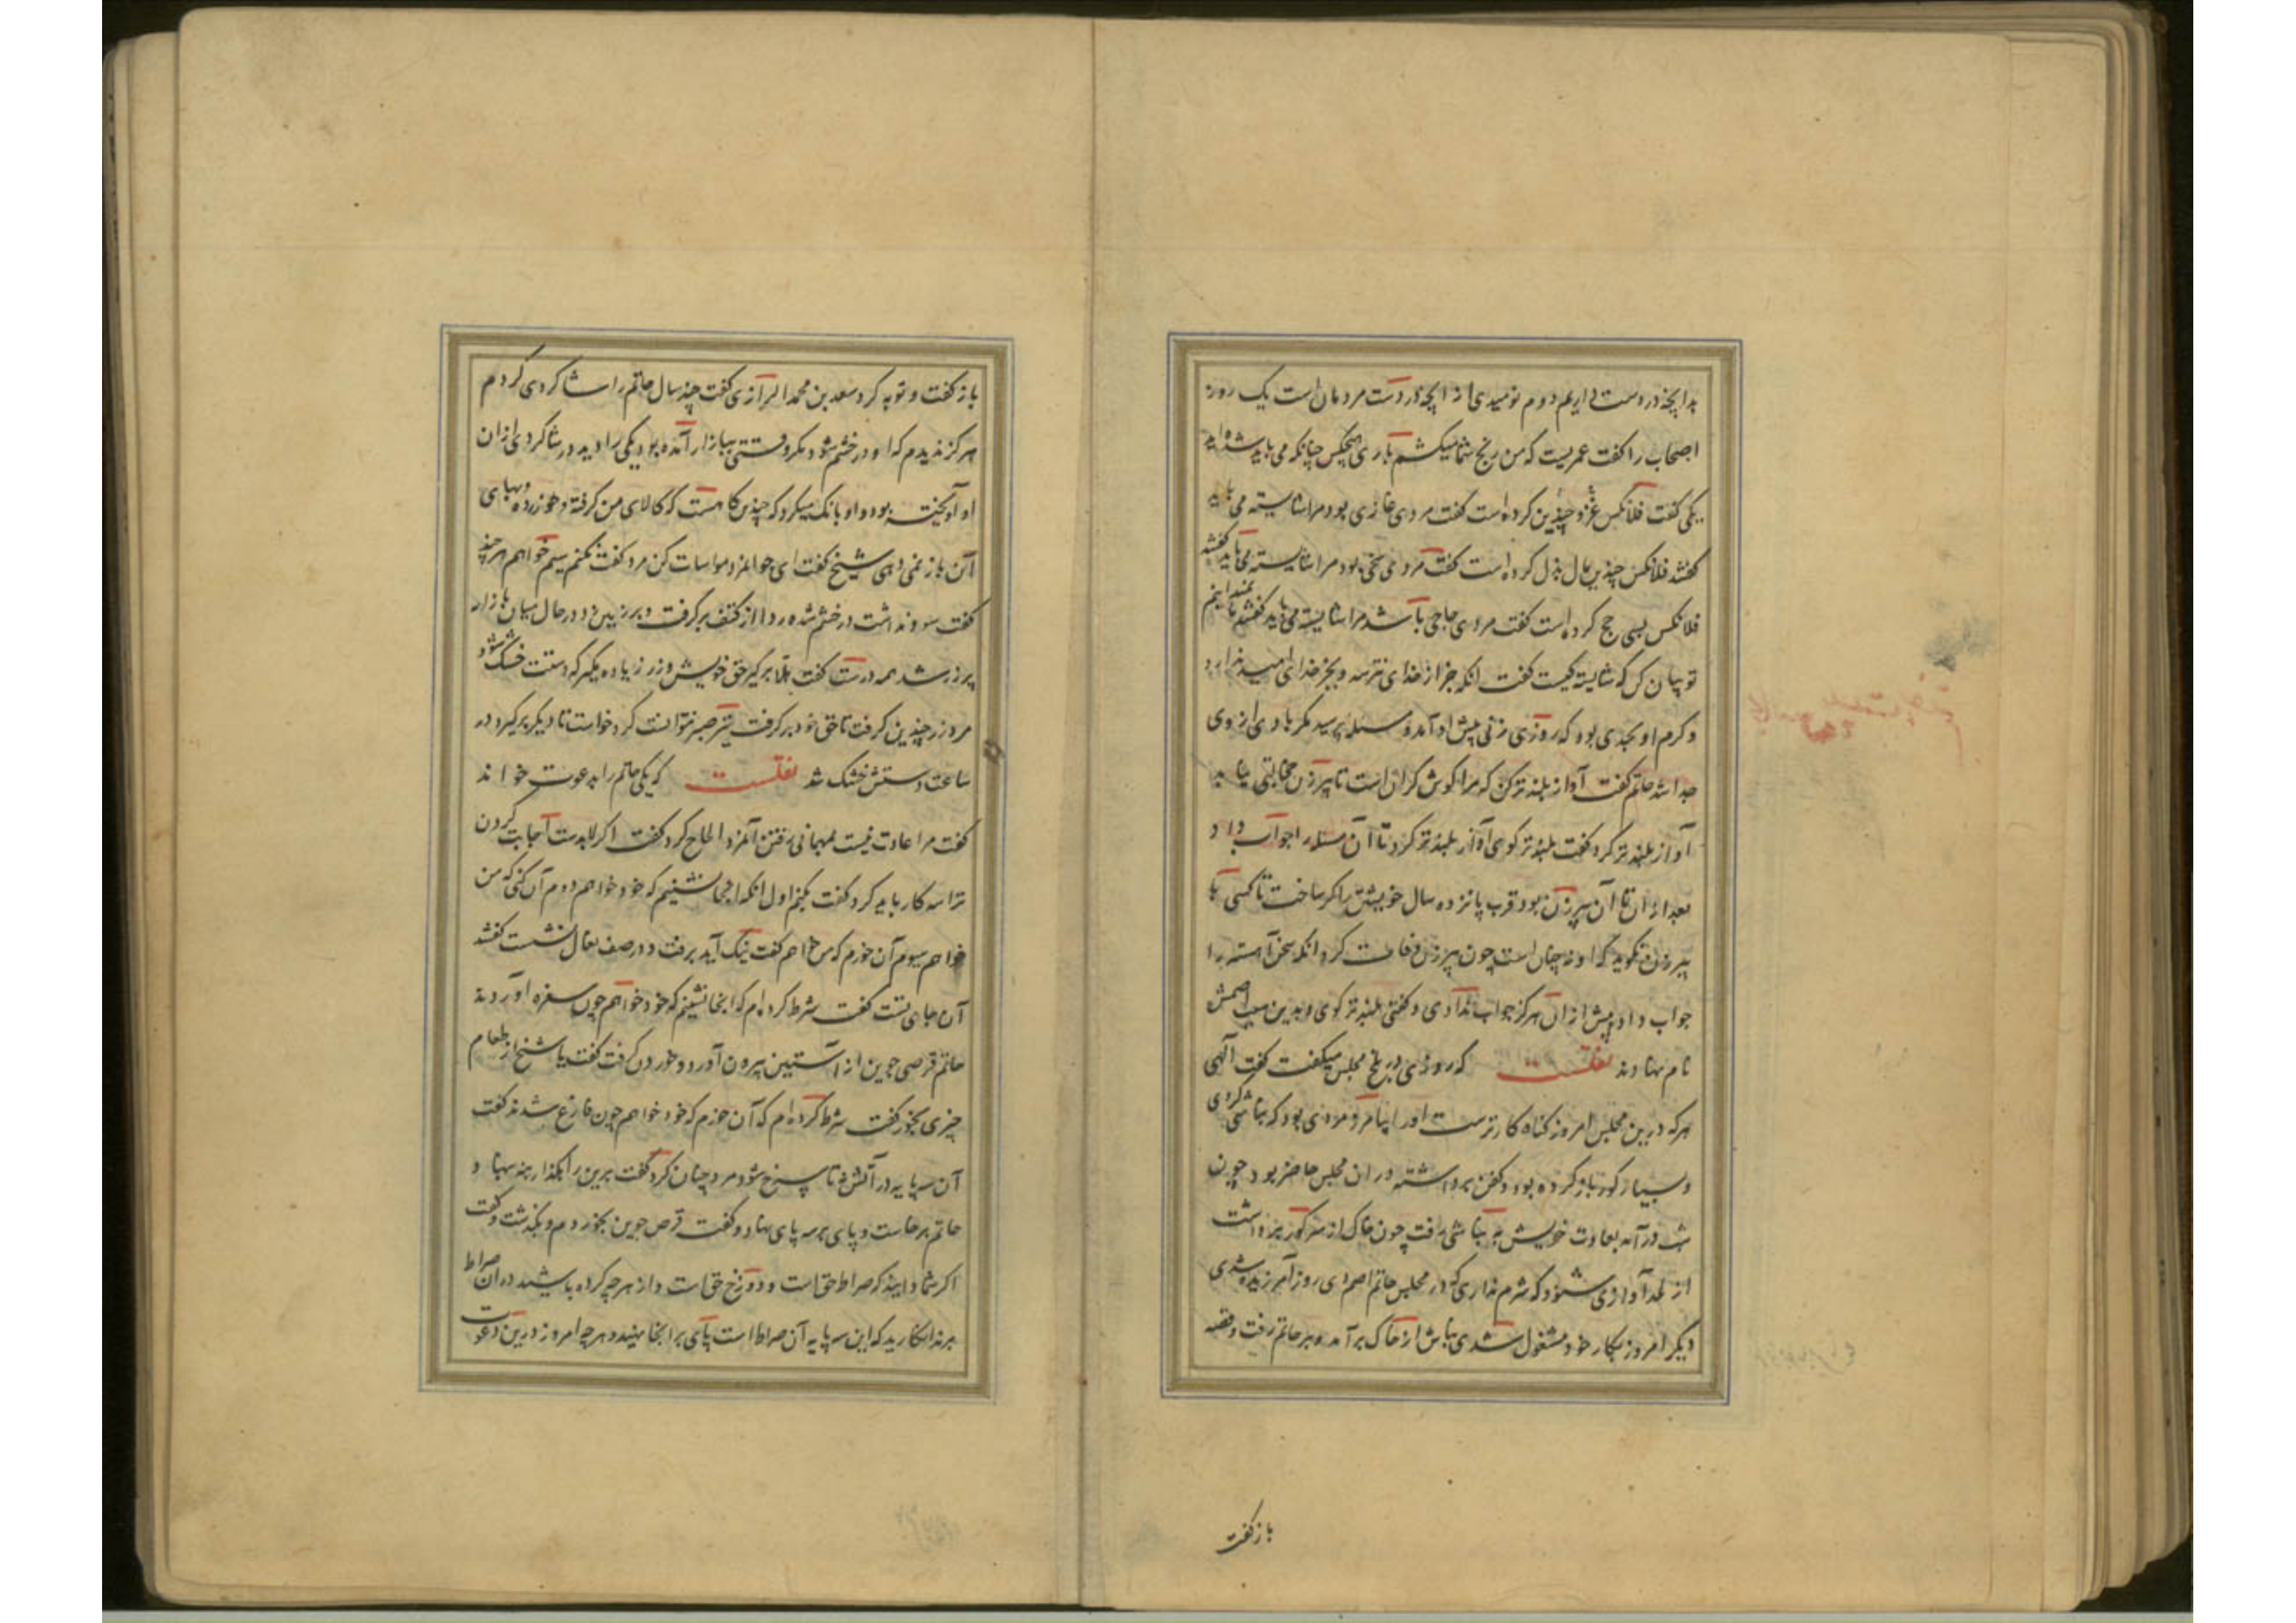 بدانچه در دست داریم دوم نومیدی از آنچه در دست مردمان است یک روز
اصحاب را گفت عمریست که من رنج شما میکشم باری هیچکس چنانکه می باید شده اید
یکی گفت فلانکس غزو چندین کرده است گفت مردی غازی بود مرا شایسته می باید
گفتند فلانکس چندین مال بذل کرده است گفت مردی سخی بود مرا شایسته می باید گفتند
فلانکس بسی حج کرده است گفت مردی حاجی باشد مرا شایسته می باید گفتند ما نمیدانیم
تو بیان کن که شایسته کیست گفت آنکه جز از خدای نترسد و بجز خدای امید ندارد
و کرم او بحدی بود که روزی زنی پیش او آمد و مسله پرسید مگر بادی از وی
جدا شد حاتم گفت آواز بلندتر کن که مرا گوش گران است تا پیرزن خجالتی نیابد
آواز بلندتر کرد گفت بلندتر گوی آواز بلندتر کرد تا آن مسله را جواب داد
بعد از آن تا آن پیرزن بود قرب پانزده سال خویشتن را کر ساخت تا کسی با
پیرزن نگوید که او نه چنان است چون پیرزن وفات کرد آنکه سخن آهسته را
جواب داد پیش از آن هرگز جواب ندادی و گفتی بلندتر گوی و بدین سبب اصمش
نام نهادند نقلست که روزی در بلخ مجلس میگفت گفت الهی
هرکه درین مجلس امروز گناه کارترست او را بیامرز و مردی بود که نباشی کردی
و بسیار گور باز کرده بود و کفن برداشته در آن مجلس حاضر بود چون
شب درآمد بعادت خویش به نباشی رفت چون خاک از سر گور برداشت
از لحد آوازی شنود که شرم نداری که در مجلس حاتم اصم دی روز آمرزیده شدی
دیگر امروز بکار خود مشغول شدی نباش از خاک برآمد و بر حاتم رفت و قصه
باز گفت
باز گفت و توبه کرد سعد بن محمد الرازی گفت چند سال حاتم را شاگردی کردم
هرگز ندیدم که او در خشم شود مگر وقتی ببازار آمده بود یکی را دید در شاگردی از آن
او آویخته بود و او بانگ میکرد که چندین گاهست که کالای من گرفته و خورده و بهای
آن باز نمی دهی شیخ گفت ای جوانمرد مواسات کن مرد گفت نکنم سیم خواهم هر چند
گفت سود نداشت در خشم شده ردا از کتف برگرفت و بر زمین زد در حال میان بازار
پر زر شد همه درست گفت هلا برگیر حق خویش و زر زیاده مگیر که دستت خشک شود
مرد زر چندین گرفت تا حق خود برگرفت نیز صبر نتوانست کرد خواست تا دیگر برگیرد در
ساعت دستش خشک شد نقلست که یکی حاتم را بدعوت خواند
گفت مرا عادت نیست بمهمانی رفتن آنمرد الحاح کرد گفت اگر لابدست اجابت کردن
ترا سه کار باید کرد گفت بکنم اول آنکه آنجا نشینم که خود خواهم دوم آن کنی که من
خواهم سیوم آن خورم که من خواهم گفت نیک آید برفت و در صف نعال نشست گفتند
آن جای تست گفت شرط کرده ام که آنجا نشینم که خود خواهم چون سفره آوردند
حاتم قرصی جوین از آستین بیرون آورد و خوردن گرفت گفت یا شیخ از طعام
چیزی بخور گفت شرط کرده ام که آن خورم که خود خواهم چون فارغ شدند گفت
آن سه پایه در آتش نه تا سرخ شود مرد چنان کرد گفت برین راهگذار بنه بنهاد
حاتم برخاست و پای بر سه پای نهاد و گفت قرص جوین بخوردم و بگذشت و گفت
اگر شما دانید که صراط حق است و دوزخ حق است و از هر چه کرده باشید در آن صراط
بپرسند انگارید که این سه پایه آن صراط است پای برانجا نهید و هر چه امروز درین دعوت